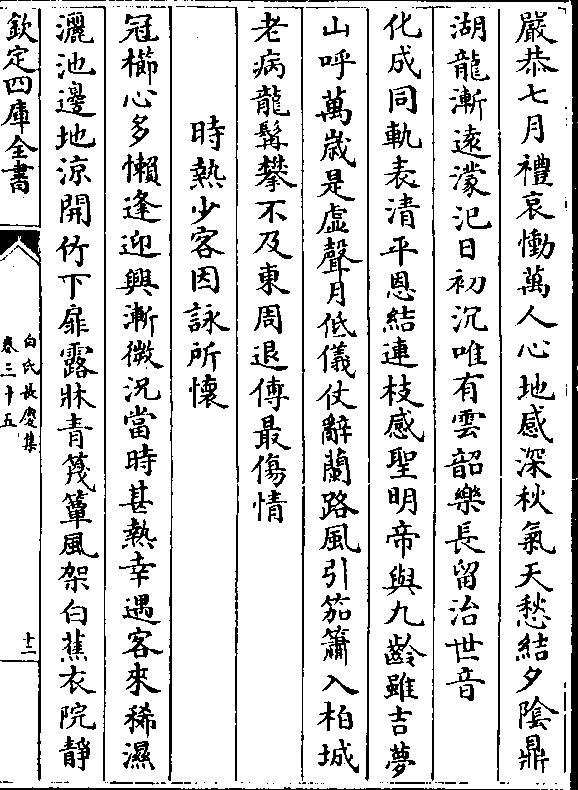 嚴恭七月禮哀慟萬人心地感深秋氣天愁結夕陰鼎
湖龍漸遠濛汜日初沉唯有雲韶樂長留治世音
化成同軌表清平恩結連枝感聖明帝與九齡雖吉夢
山呼萬歲是虛聲月低儀仗辭蘭路風引笳簫入柏城
老病龍髯攀不及東周退傅最傷情
時熱少客因詠所懷
冠櫛心多懶逢迎興漸微況當時甚熱幸遇客來稀濕
灑池邊地涼開竹下扉露牀青篾簟風架白蕉衣院靜
欽定四庫全書
白氏長慶集
卷三十五
十二